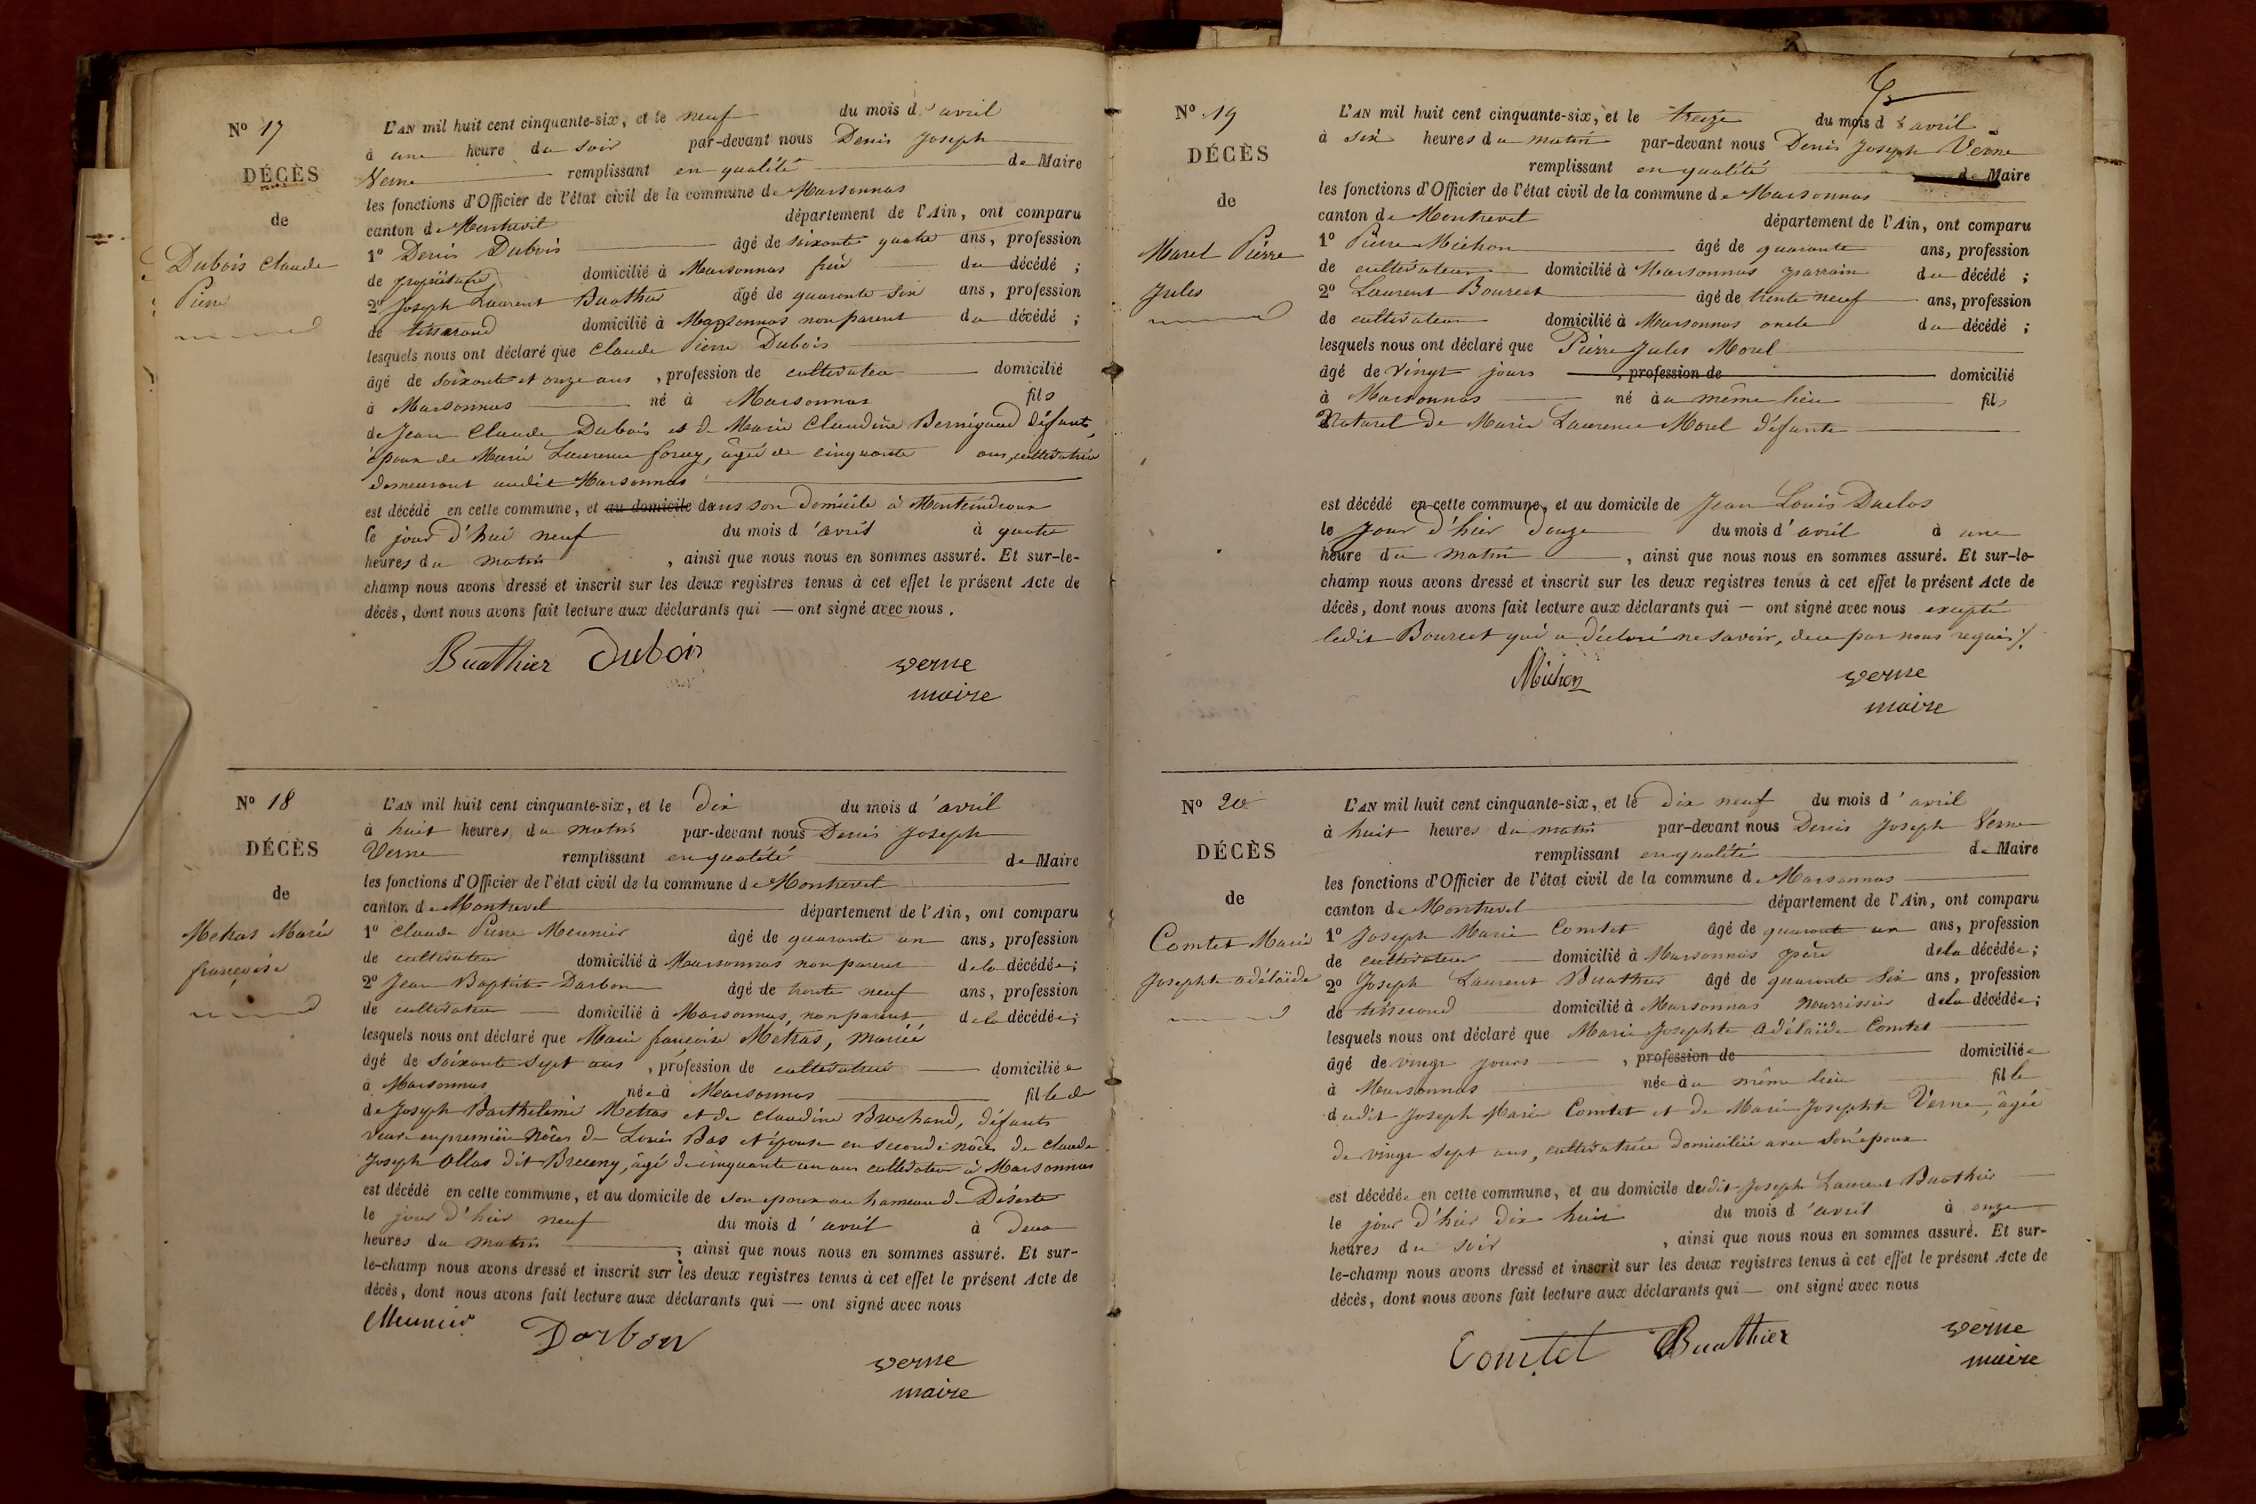 N° 17
DÉCÈS
de
Dubois Claude
Pierre
L'AN mil huit cent cinquante-six, et le neuf du mois d'avril
à une heure du soir par-devant nous Denis Joseph
Verne remplissant en qualité de Maire
les fonctions d'Officier de l'état civil de la commune de Marsonnas
canton de Montrevel département de l'Ain, ont comparu
1° Denis Dubois âgé de soixante quatre ans, profession
de propriétaire domicilié à Marsonnas frère du décédé ;
2° Joseph Laurent Buathier âgé de quarante six ans, profession
de tisserand domicilié à Marsonnas non parent du décédé ;
lesquels nous ont déclaré que Claude Pierre Dubois
âgé de soixante et onze ans, profession de cultivateur domicilié
à Marsonnas né à Marsonnas fils
de Jean Claude Dubois et de Marie Claudine Bernigaud défunts,
époux de Marie Laurence foray, âgée de cinquante ans, cultivatrice
demeurant audit Marsonnas
est décédé en cette commune, et au domicile dans son domicile à
le jour d'hui neuf du mois d'avril à quatre
heures du matin, ainsi que nous nous en sommes assuré. Et sur-le-
champ nous avons dressé et inscrit sur les deux registres tenus à cet effet le présent Acte de
décès, dont nous avons fait lecture aux déclarants qui — ont signé avec nous.
Buathier Dubois verne
maire
N° 18
DÉCÈS
de
Metras Marie
françoise
L'AN mil huit cent cinquante-six, et le dix du mois d'avril
à huit heures du matin par-devant nous Denis Joseph
Verne remplissant en qualité de Maire
les fonctions d'Officier de l'état civil de la commune de Montrevel
canton de Montrevel département de l'Ain, ont comparu
1° Claude Pierre Meunier âgé de quarante un ans, profession
de cultivateur domicilié à Marsonnas non parent de la décédée ;
2° Jean Baptiste Darbon âgé de trente neuf ans, profession
de cultivateur domicilié à Marsonnas, non parent de la décédée ;
lesquels nous ont déclaré que Marie françoise Metras, mariée
âgé de soixante sept ans, profession de cultivatrice domiciliée
à Marsonnas née à Marsonnas fille de
de Joseph Barthelemi Metras et de Claudine Brochand, défunts
veuve en première nôces de Louis Bas et épouse en seconde nôces de Claude
Joseph Ollas dit Breveny, âgé de cinquante un ans cultivateur à Marsonnas
est décédé en cette commune, et au domicile de son epoux au hameau de Déserte
le jour d'hier neuf du mois d'avril à deux
heures du matin, ainsi que nous nous en sommes assuré. Et sur-
le-champ nous avons dressé et inscrit sur les deux registres tenus à cet effet le présent Acte de
décès, dont nous avons fait lecture aux déclarants qui — ont signé avec nous
Meunier Darbon
verne
maire
N° 19
DÉCÈS
de
Morel Pierre
Jules
L'AN mil huit cent cinquante-six, et le treize du mois d'avril
à six heures du matin par-devant nous Denis Joseph Verne
remplissant en qualité de Maire
les fonctions d'Officier de l'état civil de la commune de Marsonnas
canton de Montrevel département de l'Ain, ont comparu
1° Pierre Michon âgé de quarante ans, profession
de cultivateur domicilié à Marsonnas parrain du décédé ;
2° Laurent Bourcet âgé de trente neuf ans, profession
de cultivateur domicilié à Marsonnas oncle du décédé ;
lesquels nous ont déclaré que Pierre Jules Morel
âgé de vingt jours, profession de domicilié
à Marsonnas né au même lieu fils
Naturel de Marie Laurence Morel défunte
est décédé en cette commune, et au domicile de Jean Louis Duclos
le jour d'hier douze du mois d'avril à une
heure du matin, ainsi que nous nous en sommes assuré. Et sur-le-
champ nous avons dressé et inscrit sur les deux registres tenus à cet effet le présent Acte de
décès, dont nous avons fait lecture aux déclarants qui — ont signé avec nous excepté
ledit Bourcet qui a déclaré ne savoir, de ce par nous requis
Michon verne
maire
N° 20
DÉCÈS
de
Comtet Marie
Josephte adélaïde
L'AN mil huit cent cinquante-six, et le dix neuf du mois d'avril
à huit heures du matin par-devant nous Denis Joseph Verne
remplissant en qualité de Maire
les fonctions d'Officier de l'état civil de la commune de Marsonnas
canton de Montrevel département de l'Ain, ont comparu
1° Joseph Marie Comtet âgé de quarante un ans, profession
de cultivateur domicilié à Marsonnas père de la décédée ;
2° Joseph Laurent Buathier âgé de quarante six ans, profession
de tisserand domicilié à Marsonnas nourrissier de la décédée ;
lesquels nous ont déclaré que Marie Josephte Adélaïde Comtet
âgé de vingt jours, profession de domiciliée
à Marsonnas née au même lieu fille
dudit Joseph Marie Comtet et de Marie Josephte Verne, âgée
de vingt sept ans, cultivatrice domiciliée avec son époux
est décédée en cette commune, et au domicile dudit Joseph Laurent Buathier
le jour d'hier dix huit du mois d'avril à onze
heures du soir, ainsi que nous nous en sommes assuré. Et sur-
le-champ nous avons dressé et inscrit sur les deux registres tenus à cet effet le présent Acte de
décès, dont nous avons fait lecture aux déclarants qui — ont signé avec nous
Comtet Buathier verne
maire